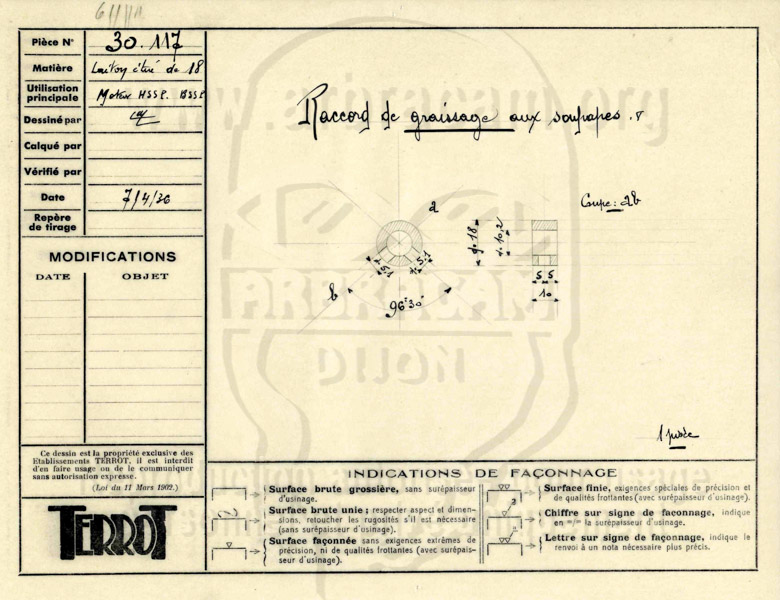 Pièce N° 30.117
Matière Laiton étiré de 18
Utilisation principale Moteur HSSP. BSSP
Dessiné par
Calqué par
Vérifié par
Date 7/4/36
Repère de tirage
MODIFICATIONS
DATE OBJET
Ce dessin est la propriété exclusive des
Etablissements TERROT, il est interdit
d'en faire usage ou de le communiquer
sans autorisation expresse.
(Loi du 11 Mars 1902.)
TERROT
Raccord de graissage aux soupapes.
a
Coupe: ab
ø 18
ø 10,2
5,1
b
96°30'
5 5
10
1 pièce
www.arbracam.org
ARBRACAM
DIJON
INDICATIONS DE FAÇONNAGE
Surface brute grossière, sans surépaisseur
d'usinage.
Surface brute unie; respecter aspect et dimen-
sions, retoucher les rugosités s'il est nécessaire
(sans surépaisseur d'usinage).
Surface façonnée sans exigences extrêmes de
précision, ni de qualités frottantes (avec surépais-
seur d'usinage).
Surface finie, exigences spéciales de précision et
de qualités frottantes (avec surépaisseur d'usinage).
Chiffre sur signe de façonnage, indique
en m/m la surépaisseur d'usinage.
Lettre sur signe de façonnage, indique le
renvoi à un nota nécessaire plus précis.